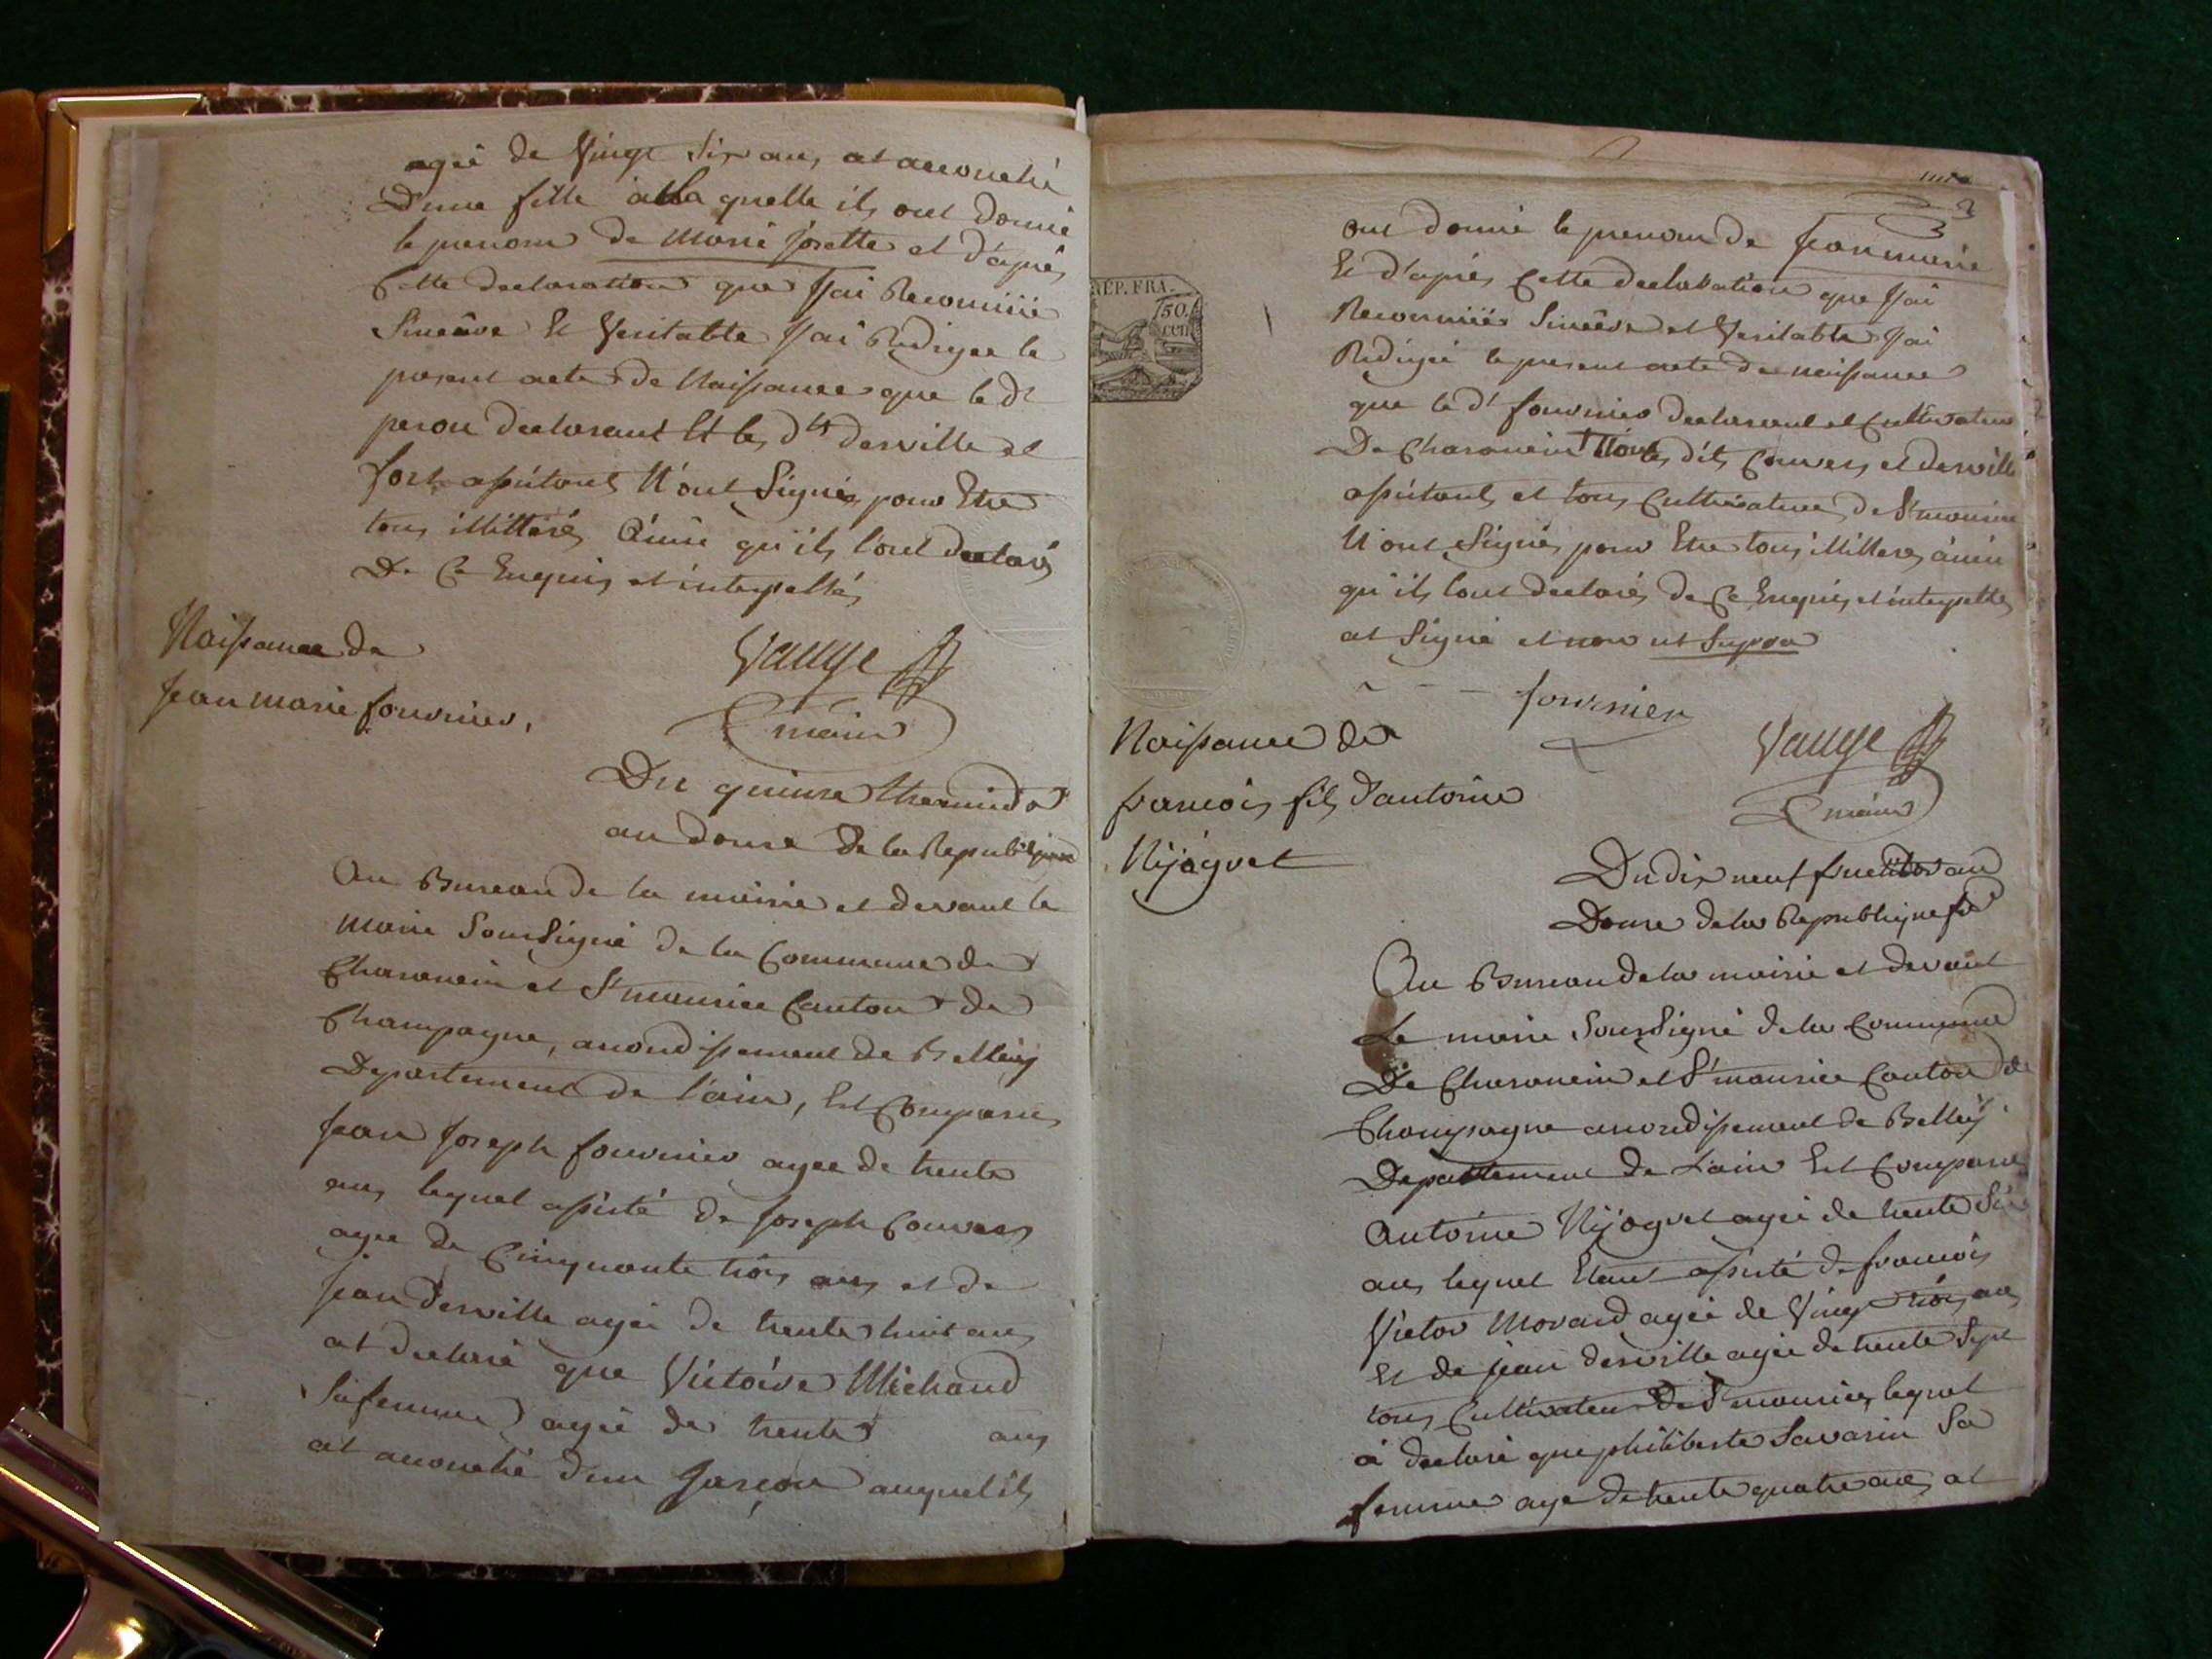 agée de Vingt Six ans, at accouché
D'une fille à la quelle ils ont donné
le prenom de Marie Josette et d'après
Cette declaration que J'ai Reconnüe
Sincère Et Veritable J'ai Redigee le
present acte de Naissance que le dt
peron declarant Et les dts derville et
fort assistants N'ont Signés pour Etre
tous illitterés Ainsi qu'ils l'ont declarés
De Ce Enquis et interpellés
Vauge
maire
Naissance de
Jean Marie fournier,
Du quinze thermidor
an douze de la Republique
Au Bureau de la mairie et devant le
Maire Soussigné de la Commune de
Charancin et St maurice Canton de
Champagne, arrondissement de Belley
Departement de l'ain, Est Comparu
Jean Joseph fournier agee de trente
ans lequel assisté de Joseph
agee de Cinquante trois ans et de
Jean Derville agée de trente huit ans
at declaré que Victoire Michaud
Sa femme agée de trente ans
at accouché d'un Garçon auquel ils
ont donné le prenom de Jean marie
Et d'après Cette declaration que J'ai
Reconnüe Sincère et Veritable J'ai
Redigée le present acte de naissance
que le dt fournier declarant et Cultivateur
De Charancin les dits et derville
assistants et tous Cultivateurs de St maurice
N'ont Signés pour Etre tous illitteres ainsi
qu'ils l'ont declarés de Ce Enquis et interpellés
at Signé et non ut Supra
fournier
Vauge
maire
RÉP. FRA.
50.
cen
Naissance de
francois fils d'antoine
Nijoguet
Du dix neuf fructidor an
Douze de la Republique
Au Bureau de la mairie et devant
Le maire Soussigné de la Commune
De Charancin et St maurice Canton de
Champagne arrondissement de Belley
Departement de L'ain Est Comparu
Antoine Nijoguet agée de trente Six
ans lequel Etant assisté de francois
Victor Morard agée de Vingt trois ans
Et de Jean derville agée de trente Sept
tous Cultivateurs de St maurice, lequel
à declaré que philiberte Savarin Sa
femme age de trente quatre ans at